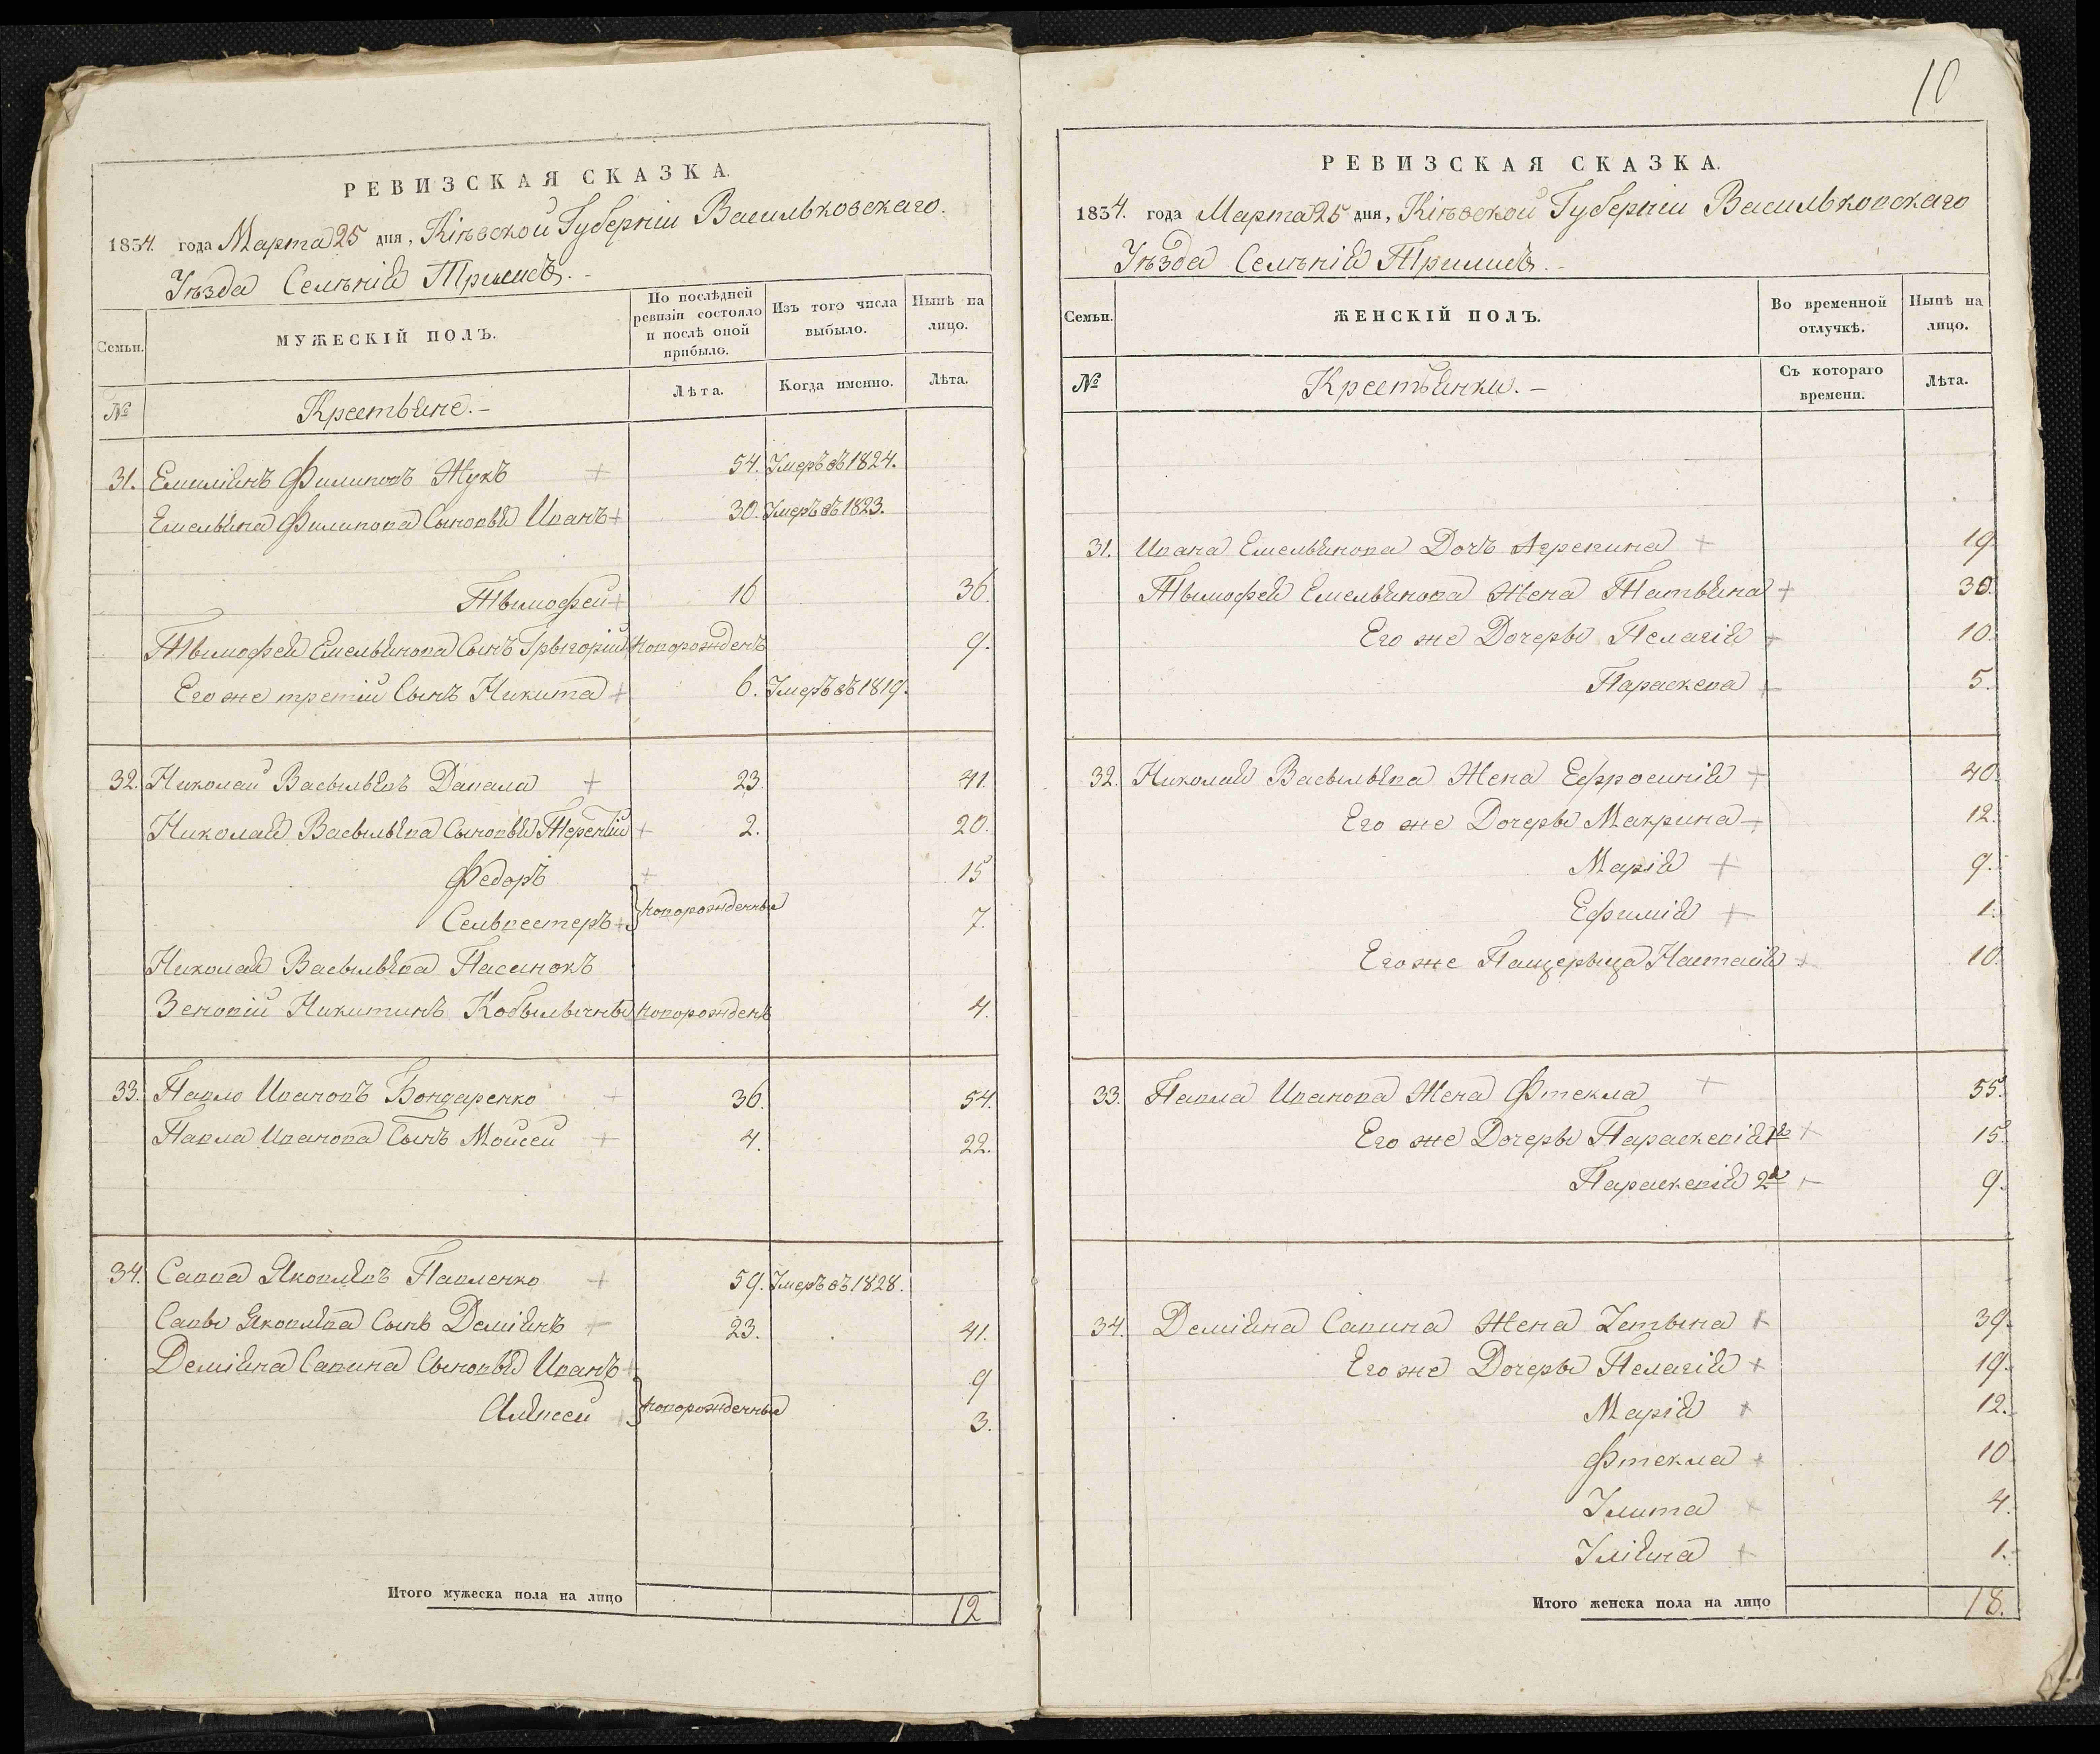 РЕВИЗСКАЯ СКАЗКА.
1834. года Марта 25 дня, Кіевской Губерніи Васильковскаго.
Уѣзда Селѣнія Трилисъ. -
Семьи.
МУЖЕСКІЙ ПОЛЪ.
По послѣдней ревизіи состояло и послѣ оной прибыло.
Изъ того числа выбыло.
Нынѣ на лицо.
№
Крестьяне. -
Лѣта.
Когда именно.
Лѣта.
31. Емиліянъ Филиповъ Жукъ + 54. Умеръ въ 1824.
Емельяна Филипова Сыновья Иванъ + 30. Умеръ въ 1823.
Тымофей + 16 36.
Тымофея Емельянова Сынъ Грыгорій Новорожденъ 9.
Его же третій Сынъ Никита + 6. Умеръ въ 1819.
32. Николай Васыльевъ Дацала + 23. 41.
Николая Васыльева Сыновья Терентій + 2. 20.
Федоръ + 15
Сельвестеръ + } Новорожденные 7.
Николая Васыльева Пасынокъ
Зеновій Никитинъ Новорожденъ 4.
33. Павло Ивановъ Бондаренко + 36. 54.
Павла Иванова Сынъ Моисей + 4. 22.
34. Савва Яковлевъ Павленко + 59. Умеръ въ 1828.
Савы Яковлева Сынъ Деміянъ + 23. 41.
Деміяна Савина Сыновья Иванъ + 9
Алексей + } Новорожденные 3.
Итого мужеска пола на лицо 12
10
РЕВИЗСКАЯ СКАЗКА.
1834. года Марта 25 дня, Кіевской Губерніи Васильковскаго
Уѣзда Селѣнія Трилисъ. -
Семьи.
ЖЕНСКІЙ ПОЛЪ.
Во временной отлучкѣ.
Нынѣ на лицо.
№
Крестьянки. -
Съ котораго времени.
Лѣта.
31. Ивана Емельянова Дочь Агрепина + 19
Тымофея Емельянова Жена Татьяна + 30.
Его же Дочеры Пелагія + 10.
Параскева + 5.
32. Николая Васыльева Жена Ефросинія + 40.
Его же Дочеры Макрина + 12.
Марія + 9.
Ефимія + 1.
Его же Пащерыца Настасія + 10.
33. Павла Иванова Жена Фтекла + 55.
Его же Дочеры Параскевія 1я + 15.
Параскевія 2я + 9.
34. Деміяна Савина Жена Устына + 39.
Его же Дочеры Пелагія + 19.
Марія + 12.
Фтекла + 10
Улита + 4.
Уліяна + 1.
Итого женска пола на лицо 18.